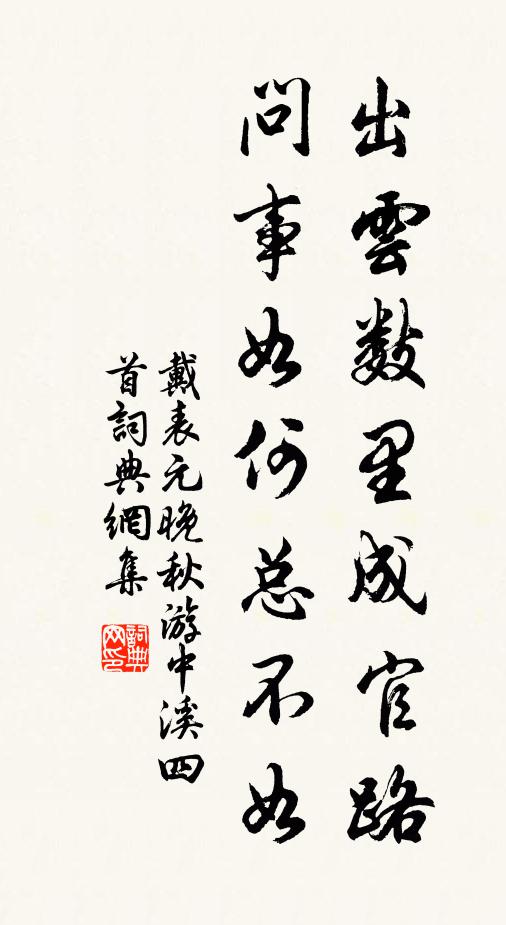 出雲數里成官路
問事如何总不如
戴表元晚秋游中溪四
首詞典網集
詞典
网印